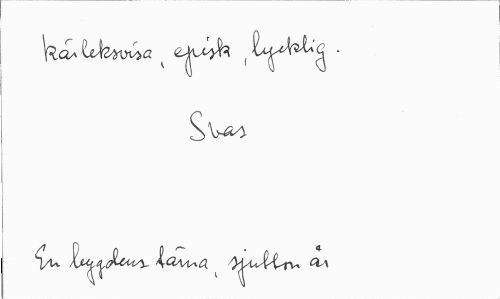 kärleksvisa, episk, lycklig.
Svas
En bygdens tärna, sjutton år